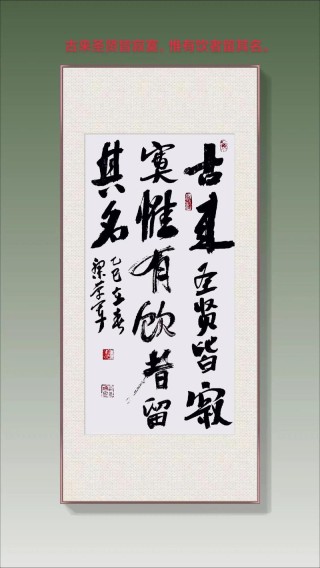 古来圣贤皆寂寞，惟有饮者留其名。
古来圣贤皆寂
寞惟有饮者留
其名
乙巳立春